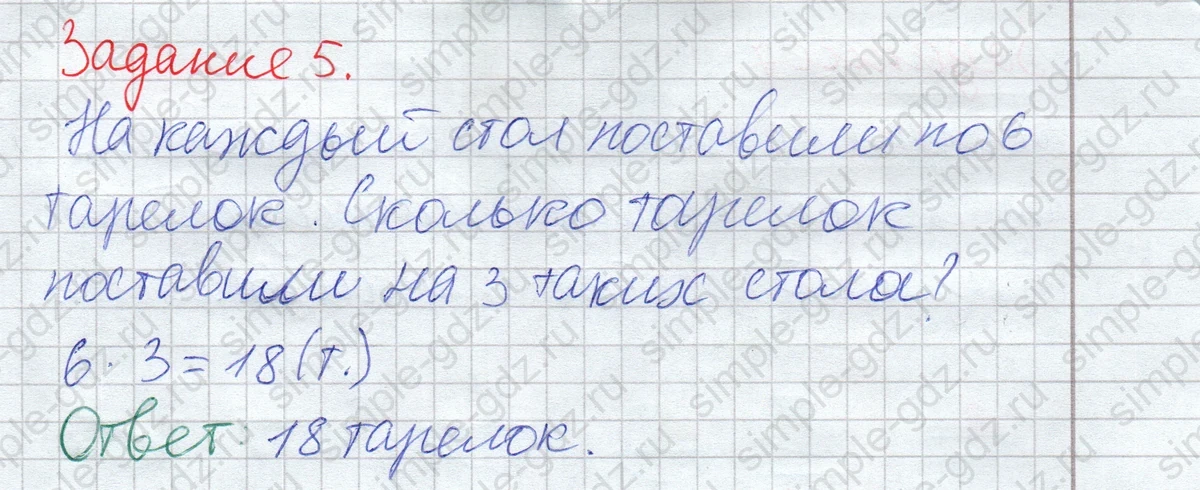 Задание 5.
На каждый стол поставили по 6
тарелок. Сколько тарелок
поставили на 3 таких стола?
6 · 3 = 18 (т.)
Ответ: 18 тарелок.
simple-gdz.ru